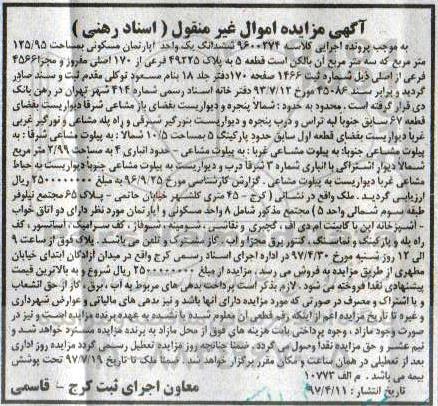 آگهی مزایده اموال غیر منقول ( اسناد رهنی )
به موجب پرونده اجرایی کلاسه ۹۶۰۰۲۷۴ ششدانگ یک واحد آپارتمان مسکونی بمساحت ۱۲۵/۹۵
متر مربع که سه متر مربع آن بالکن است قطعه ۵ به پلاک ۴۹۲۲۵ فرعی از ۱۷۰ اصلی مفروز و مجزا ۴۵۶۶
فرعی از اصلی ذیل شماره ثبت ۱۴۶۶ صفحه ۱۷۰ دفتر جلد ۱۸ بنام مسعود توکلی مقدم ثبت و سند صادر
گردید و برابر سند ۴۵۰۸۶ مورخ ۹۳/۷/۱۲ دفتر خانه اسناد رسمی شماره ۴۱۴ شهر تهران در رهن بانک
دی قرار گرفته است . محدود به حدود : شمالا پنجره و دیواریست بفضای باز مشاعی شرقا : دیواریست بفضای
قطعه ۶۷ سابق جنوبا لبه تراس و درب پنجره و دیواریست بنورگیر شیرقی و راه پله مشاعی و نورگیر غربی
غربا دیواریست بفضای قطعه اول سابق حدود پارکینگ ۵ بمساحت ۱۰/۵ شمالا : به پیلوت مشاعی شرقا : به
پیلوت مشاعی جنوبا: به پیلوت مشاعی غربا : به پیلوت مشاعی- حدود انباری ۴ به مساحت ۲/۹۹ متر مربع
شمالا دیوار اشتراکی با انباری شماره ۳ شرقا درب و دیواریست به پیلوت مشاعی جنوبا دیواریست به حیاط
مشاعی غربا دیواریست به پیلوت مشاعی . گزارش کارشناسی مورخ ۹۶/۹/۲۵ به مبلغ ۲۵۰۰۰۰۰۰۰۰ ریال
ارزیابی گردید . ملک واقع در نشانی ( کرج – ۴۵ متری گلشهر خیابان حاتمی – پلاک ۶۵ مجتمع نیلوفر
طبقه سوم شمالی واحد ۵ ) مجتمع مذکور شامل ۸ واحد مسکونی و آپارتمان مورد نظر دارای دو اتاق خواب
، آشپزخانه اپن با کابینت ام.دی اف، گچبری و نقاشی ، شومینه ، شوفاژ ، کف سرامیک ، آسانسور ، کف
راه پله و پارکینگ و نماسنگ، کنتور برق مجزا و آب . گاز مشترک و تلفن می باشند . پلاک فوق از ساعت ۹
الی ۱۲ روز شنبه مورخ ۹۷/۴/۳۰ در اداره اجرای اسناد رسمی کرج واقع در میدان آزادگان ابتدای خیابان
مطهری از طریق مزایده به فروش می رسد . مزایده از مبلغ ۲۵۰۰۰۰۰۰۰۰ ریال شروع و به بالاترین قیمت
پیشنهادی نقدا فروخته می شود . لازم بذکر است پرداخت بدهی های مربوط به آب ، برق ، گاز حق انشعاب
و یا اشتراک و مصرف در صورتی که مورد مزایده دارای آنها باشد و نیز بدهی های مالیاتی و عوارض شهرداری
و غیره تا تاریخ مزایده اعم از اینکه رقم قطعی آن معلوم شده یا نشده به عهده برنده مزایده است و نیز در
صورت وجود مازاد ، وجوه پرداختی بابت هزینه های فوق از محل مازاد به برنده مزایده مسترد خواهد شد و
نیم عشر و حق مزایده نقدا وصول می گردد . ضمنا چنانچه روز مزایده تعطیل رسمی گردد مزایده روز اداری
بعد از تعطیلی در همان ساعت و مکان مقرر برگزار خواهد شد . ضمنا ملک تا تاریخ ۹۷/۷/۱۹ تحت پوشش
بیمه می باشد . م الف ۱۰۷۷۳
تاریخ انتشار : ۹۷/۴/۱۱
معاون اجرای ثبت کرج – قاسمی